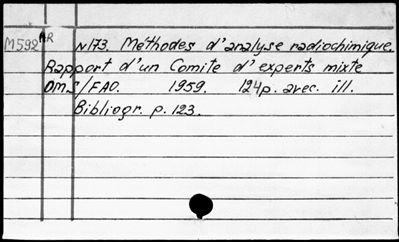 M592 AR N173. Méthodes d'analyse radiochimique.
Rapport d'un Comite d'experts mixte
OMS/FAO. 1959. 124p. avec. ill.
Bibliogr. p. 123.